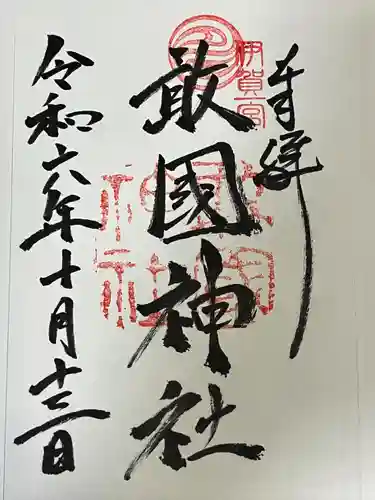 奉拝
伊賀一宮
敢國神社
令和六年十月十三日